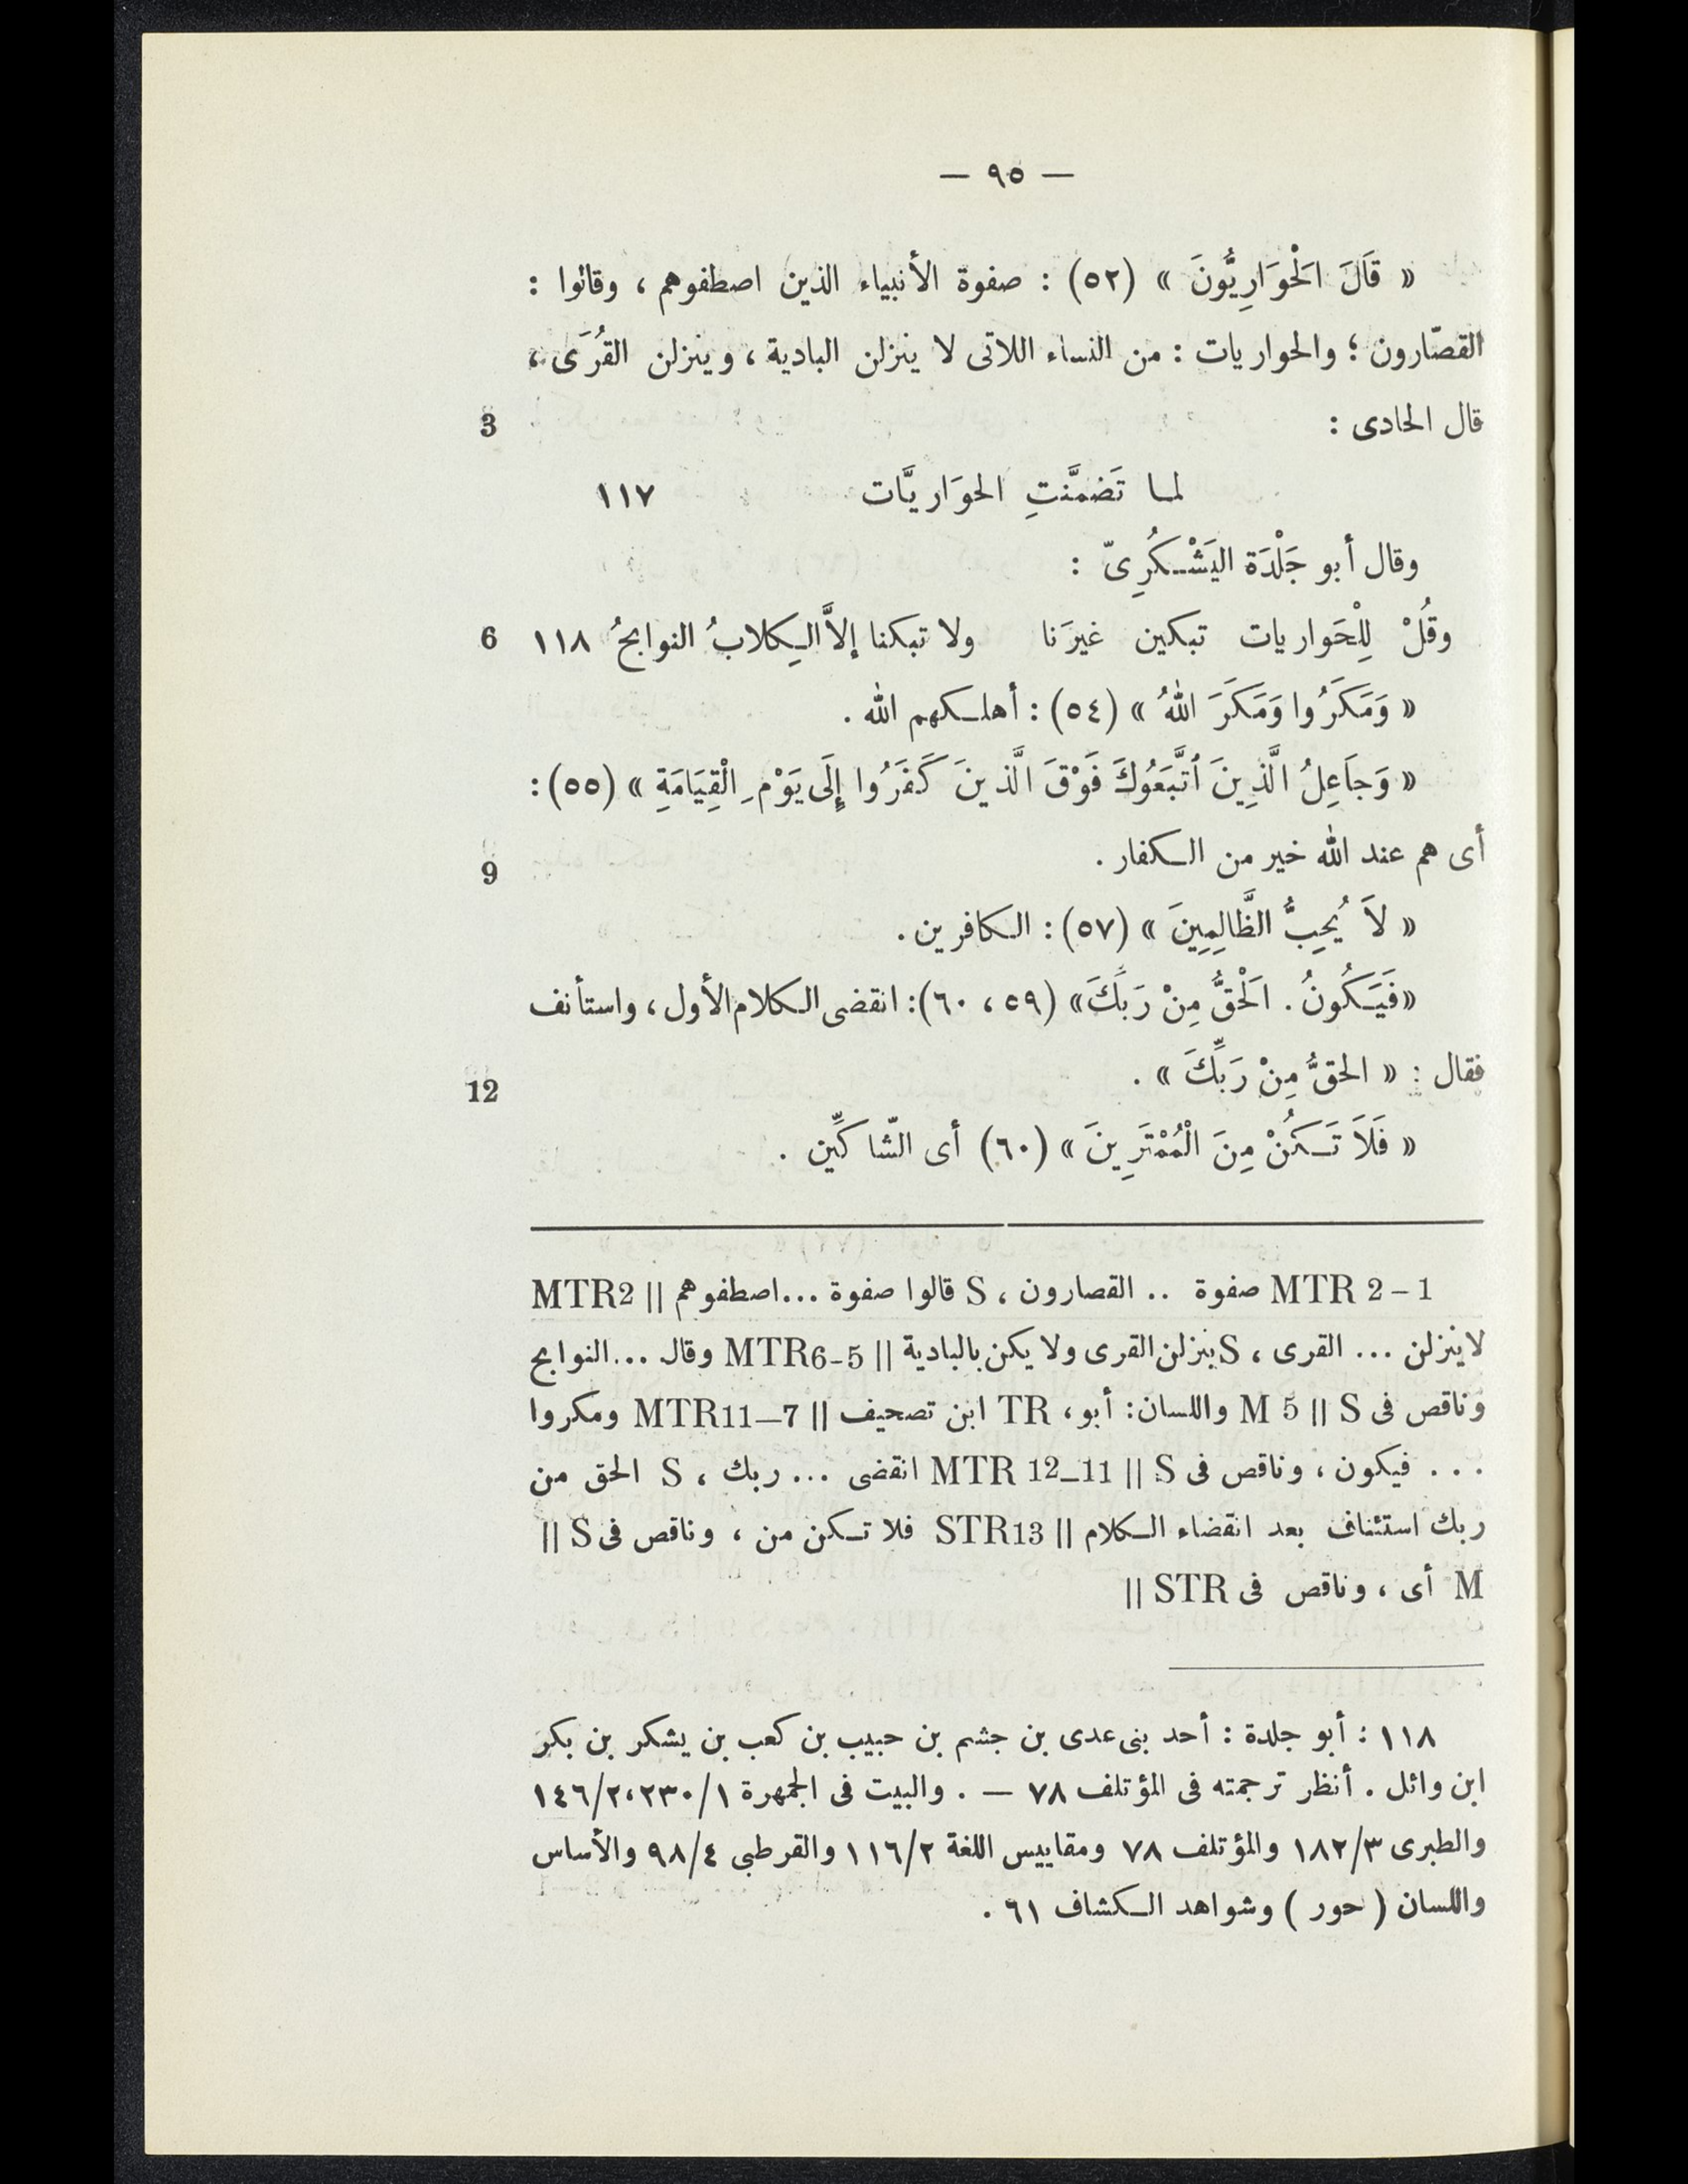 — ٩٥ —
« قَالَ الْحَوَارِيُّونَ » (٥٢) : صفوة الأنبياء الذين اصطفوهم ، وقالوا :
القصّارون ؛ والحواريات : من النساء اللاتى لا ينزلن البادية ، وينزلن القُرَى ،
قال الحادى : 3
لما تَضمَّنَتِ الحوَاريَّات ١١٧
وقال أبو جَلْدَة اليَشْكُرِىّ :
وقُلْ لِلْحَواريات تبكين غيرَنا ولا تبكنا إلاَّ الكِلابُ النوابحُ ١١٨ 6
« وَمَكَرُوا وَمَكَرَ اللهُ » (٥٤) : أهلكهم الله .
« وَجَاعِلُ الَّذِينَ ٱتَّبَعُوكَ فَوْقَ الَّذينَ كَفَرُوا إِلَى يَوْمِ الْقِيَامَةِ » (٥٥) :
أى هم عند الله خير من الكفار . 9
« لاَ يُحِبُّ الظَّالِمِينَ » (٥٧) : الكافرين .
«فَيَكُونُ . الْحَقُّ مِنْ رَبِّكَ» (٥٩ ، ٦٠): انقضى الكلام الأول ، واستأنف
فقال : « الحقُّ مِنْ رَبِّكَ » . 12
« فَلاَ تَكُنْ مِنَ الْمُمْتَرِينَ » (٦٠) أى الشّاكِّين .
1 – 2 MTR صفوة .. القصارون ، S قالوا صفوة ...اصطفوهم || MTR2
لاينزلن ... القرى ، S ينزلن القرى ولا يكن بالبادية || MTR6-5 وقال ...النوابح
وناقص فى S || M 5 واللسان: أبو، TR ابن تصحيف || MTR11—7 ومكروا
... فيكون ، وناقص فى S || MTR 12–11 انقضى ... ربك ، S الحق من
ربك استئناف بعد انقضاء الكلام || STR13 فلا تكن من ، وناقص فى S ||
M أى ، وناقص فى STR ||
١١٨ : أبو جلدة : أحد بنى عدى بن جشم بن حبيب بن كعب بن يشكر بن بكر
ابن وائل . أنظر ترجمته فى المؤتلف ٧٨ — . والبيت فى الجمهرة ٢٣٠/١، ١٤٦/٢
والطبرى ١٨٢/٣ والمؤتلف ٧٨ ومقاييس اللغة ١١٦/٢ والقرطبى ٩٨/٤ والأساس
واللسان ( حور ) وشواهد الكشاف ٦١ .